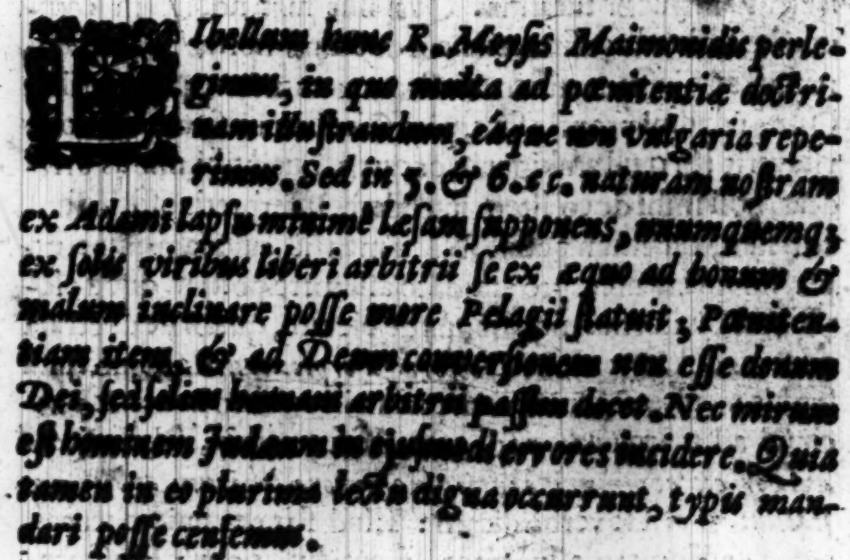 LIbellum hunc R. Moysis Maimonidis perle-
gimus, in quo multa ad pœnitentiæ doctri-
nam illuſtrandam, eáque non vulgaria repe-
rimus. Sed in 5. & 6. cc. naturam noſtram
ex Adami lapſu minimè læſam ſupponens, unumquemq;
ex ſolis viribus liberi arbitrii ſe ex æquo ad bonum &
malum inclinare poſſe more Pelagii ſtatuit; Pœniten-
tiam item, & ad Deum converſionem non eſſe donum
Dei, ſed ſolius humani arbitrii paſſim docet. Nec mirum
eſt hominem Judæum in ejuſmodi errores incidere. Quia
tamen in eo plurima lectu digna occurrunt, typis man-
dari poſſe cenſemus.